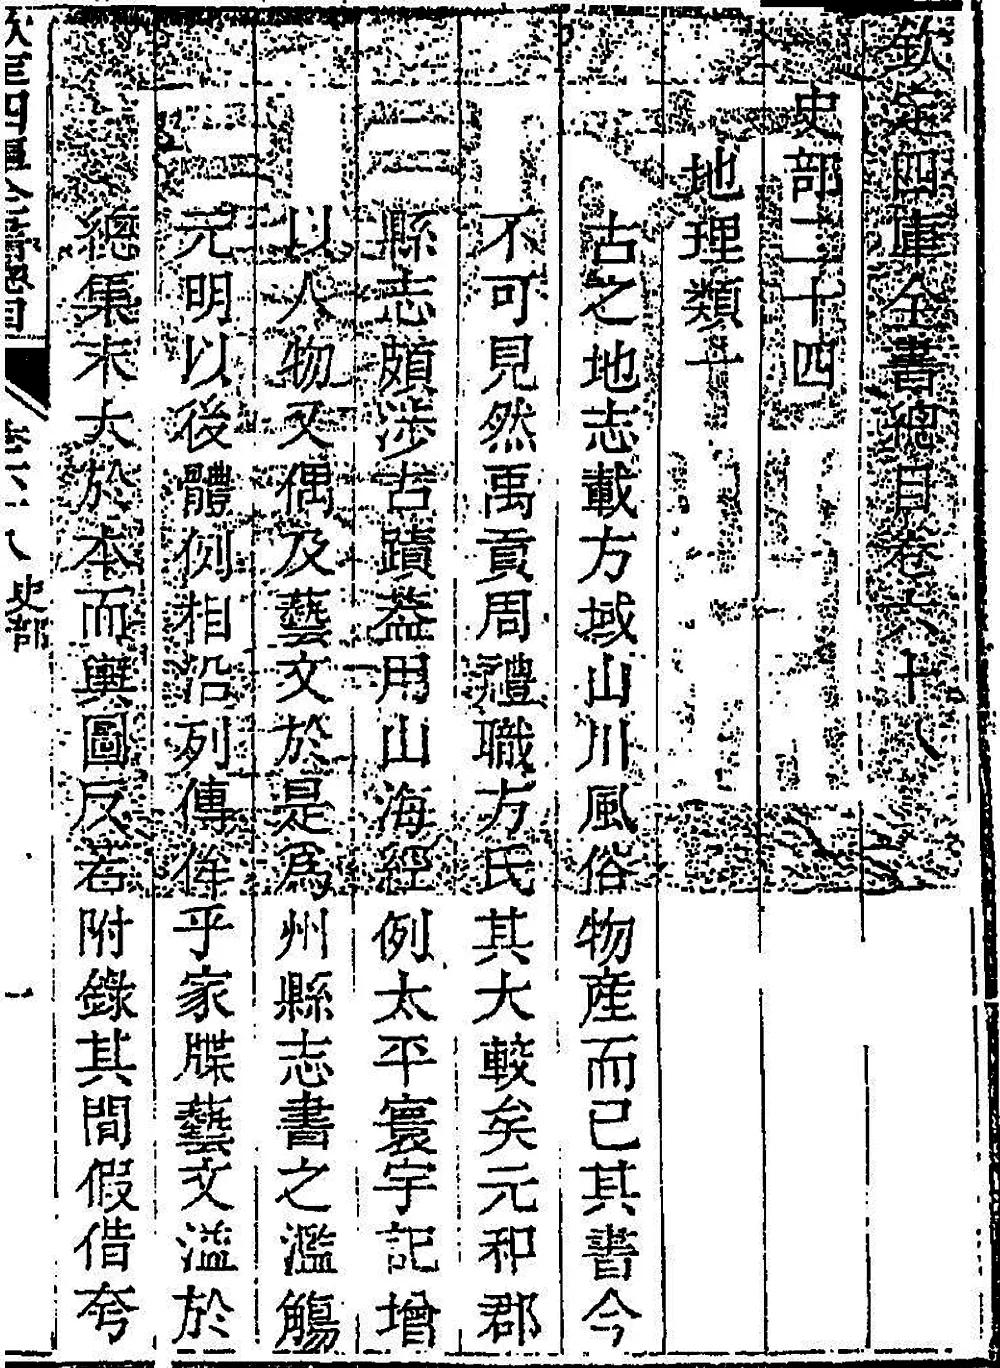 欽定四庫全書總目卷六十八
史部二十四
地理類一
古之地志載方域山川風俗物産而已其書今
不可見然禹貢周禮職方氏其大較矣元和郡
縣志頗涉古蹟蓋用山海經例太平寰宇記增
以人物又偶及藝文於是爲州縣志書之濫觴
元明以後體例相沿列傳侔乎家牒藝文溢於
總集末大於本而輿圖反若附錄其間假借夸
欽定四庫全書總目
卷六十八 史部
一